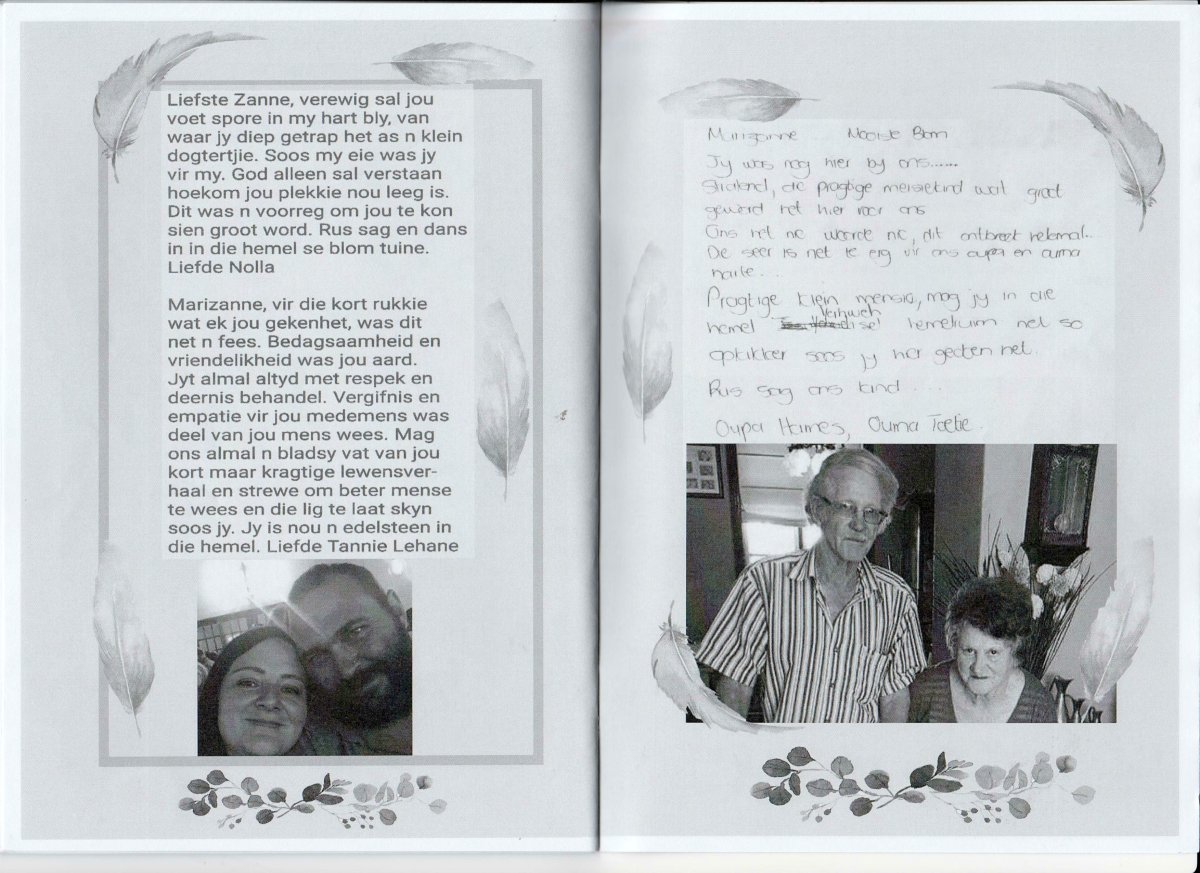 Liefste Zanne, verewig sal jou
voet spore in my hart bly, van
waar jy diep getrap het as n klein
dogtertjie. Soos my eie was jy
vir my. God alleen sal verstaan
hoekom jou plekkie nou leeg is.
Dit was n voorreg om jou te kon
sien groot word. Rus sag en dans
in in die hemel se blom tuine.
Liefde Nolla
Marizanne, vir die kort rukkie
wat ek jou gekenhet, was dit
net n fees. Bedagsaamheid en
vriendelikheid was jou aard.
Jyt almal altyd met respek en
deernis behandel. Vergifnis en
empatie vir jou medemens was
deel van jou mens wees. Mag
ons almal n bladsy vat van jou
kort maar kragtige lewensver-
haal en strewe om beter mense
te wees en die lig te laat skyn
soos jy. Jy is nou n edelsteen in
die hemel. Liefde Tannie Lehane
Marizanne Mooiste Blom
Jy was nog hier by ons......
Stralend, die pragtige meisiekind wat groot
geword het hier voor ons
Ons het nie woorde nie, dit ontbreek helemal..
De seer is net te erg vir ons oupa en ouma
harte...
Pragtige klein mensie, mag jy in die
hemel hemelruim net so
opkikker soos jy hier gedoen het.
Rus sag ons kind ....
Oupa Hannes, Ouma Toetie.